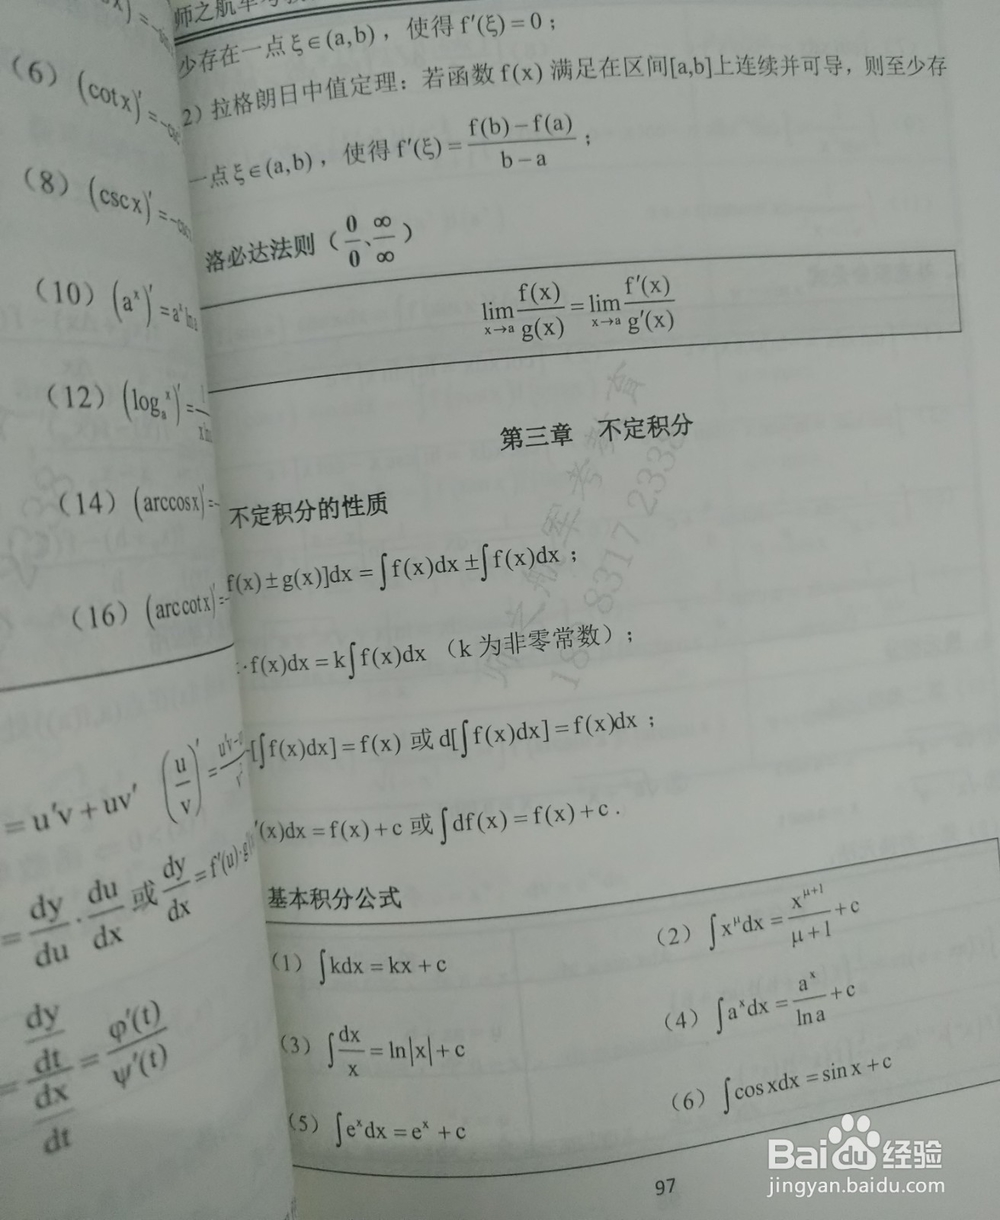 (6) (cot x)′ = -csc
(8) (csc x)′ = -csc
(10) (aˣ)′ = aˣ ln a
(12) (logₐˣ)′ = 1/x ln
(14) (arccos x)′ = -
(16) (arc cot x)′ = -
= u′v + uv′ (u/v)′ = u′v-
= dy/du · du/dx 或 dy/dx = f′(u)·g
= (dy/dt)/(dx/dt) = φ′(t)/ψ′(t)
师之航军考教
少存在一点 ξ∈(a,b)，使得 f′(ξ) = 0；
2) 拉格朗日中值定理：若函数 f(x) 满足在区间[a,b]上连续并可导，则至少存
一点 ξ∈(a,b)，使得 f′(ξ) = (f(b)-f(a))/(b-a)；
洛必达法则（0/0、∞/∞）
lim x→a f(x)/g(x) = lim x→a f′(x)/g′(x)
第三章 不定积分
不定积分的性质
f(x)±g(x)]dx = ∫f(x)dx ± ∫f(x)dx；
·f(x)dx = k∫f(x)dx （k 为非零常数）；
[∫f(x)dx] = f(x) 或 d[∫f(x)dx] = f(x)dx；
′(x)dx = f(x)+c 或 ∫df(x) = f(x)+c.
基本积分公式
(1) ∫kdx = kx + c
(2) ∫x^μ dx = x^(μ+1)/(μ+1) + c
(3) ∫dx/x = ln|x| + c
(4) ∫aˣdx = aˣ/ln a + c
(5) ∫eˣdx = eˣ + c
(6) ∫cos xdx = sin x + c
97
Baidu经验
jingyan.baidu.com